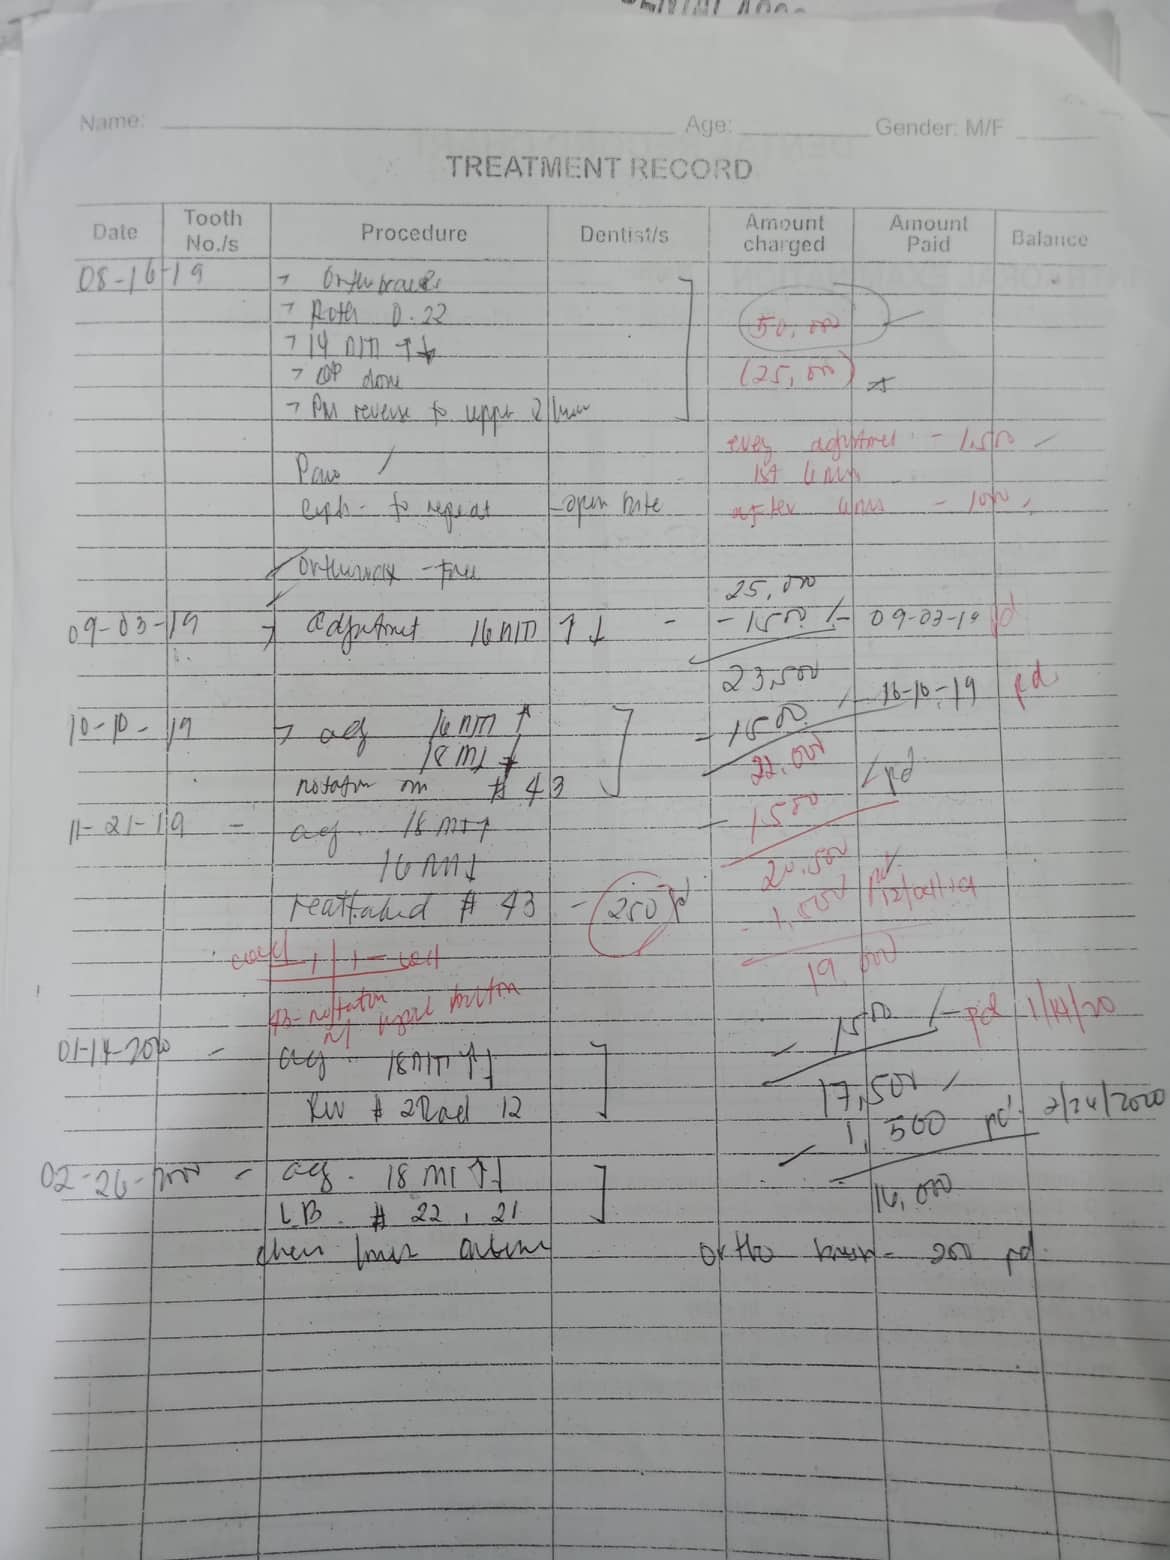 Name: Age: Gender: M/F
TREATMENT RECORD
Date Tooth No./s Procedure Dentist/s Amount charged Amount Paid Balance
08-16-19 → Ortho braces
→ Roth 0.22 50,000
→ 14 niti ↑↓
→ OP done (25,000)
→ PM reverse to upper 2
every adjustment - 1,500
Pano / 1st 6
ceph - to repeat - open bite after - 1000
orthowax - free
25,000
09-03-19 → adjustment 16 niti ↑↓ - - 1500 /- 09-03-19 pd
23,500
10-10-19 → adj 16 niti ↑ - 1500 / 10-10-19 pd
18 niti ↓ 22,000
rotation on # 43 / pd
11-21-19 - adj. 18 niti ↑ - 1500
16 niti ↓ 20,500
reattached # 43 - 250 pd - 1,500 / pd.
19,000
43 - rotation
w/ button 1500 /- pd 1/14/20
01-14-2020 - adj 18 niti ↑↓
17,500
# 22 12 - 1,500 pd 2/26/2020
02-26-2020 - adj. 18 niti ↑↓
16,000
LB. # 22, 21
chain lower
ortho brush - 250 pd.